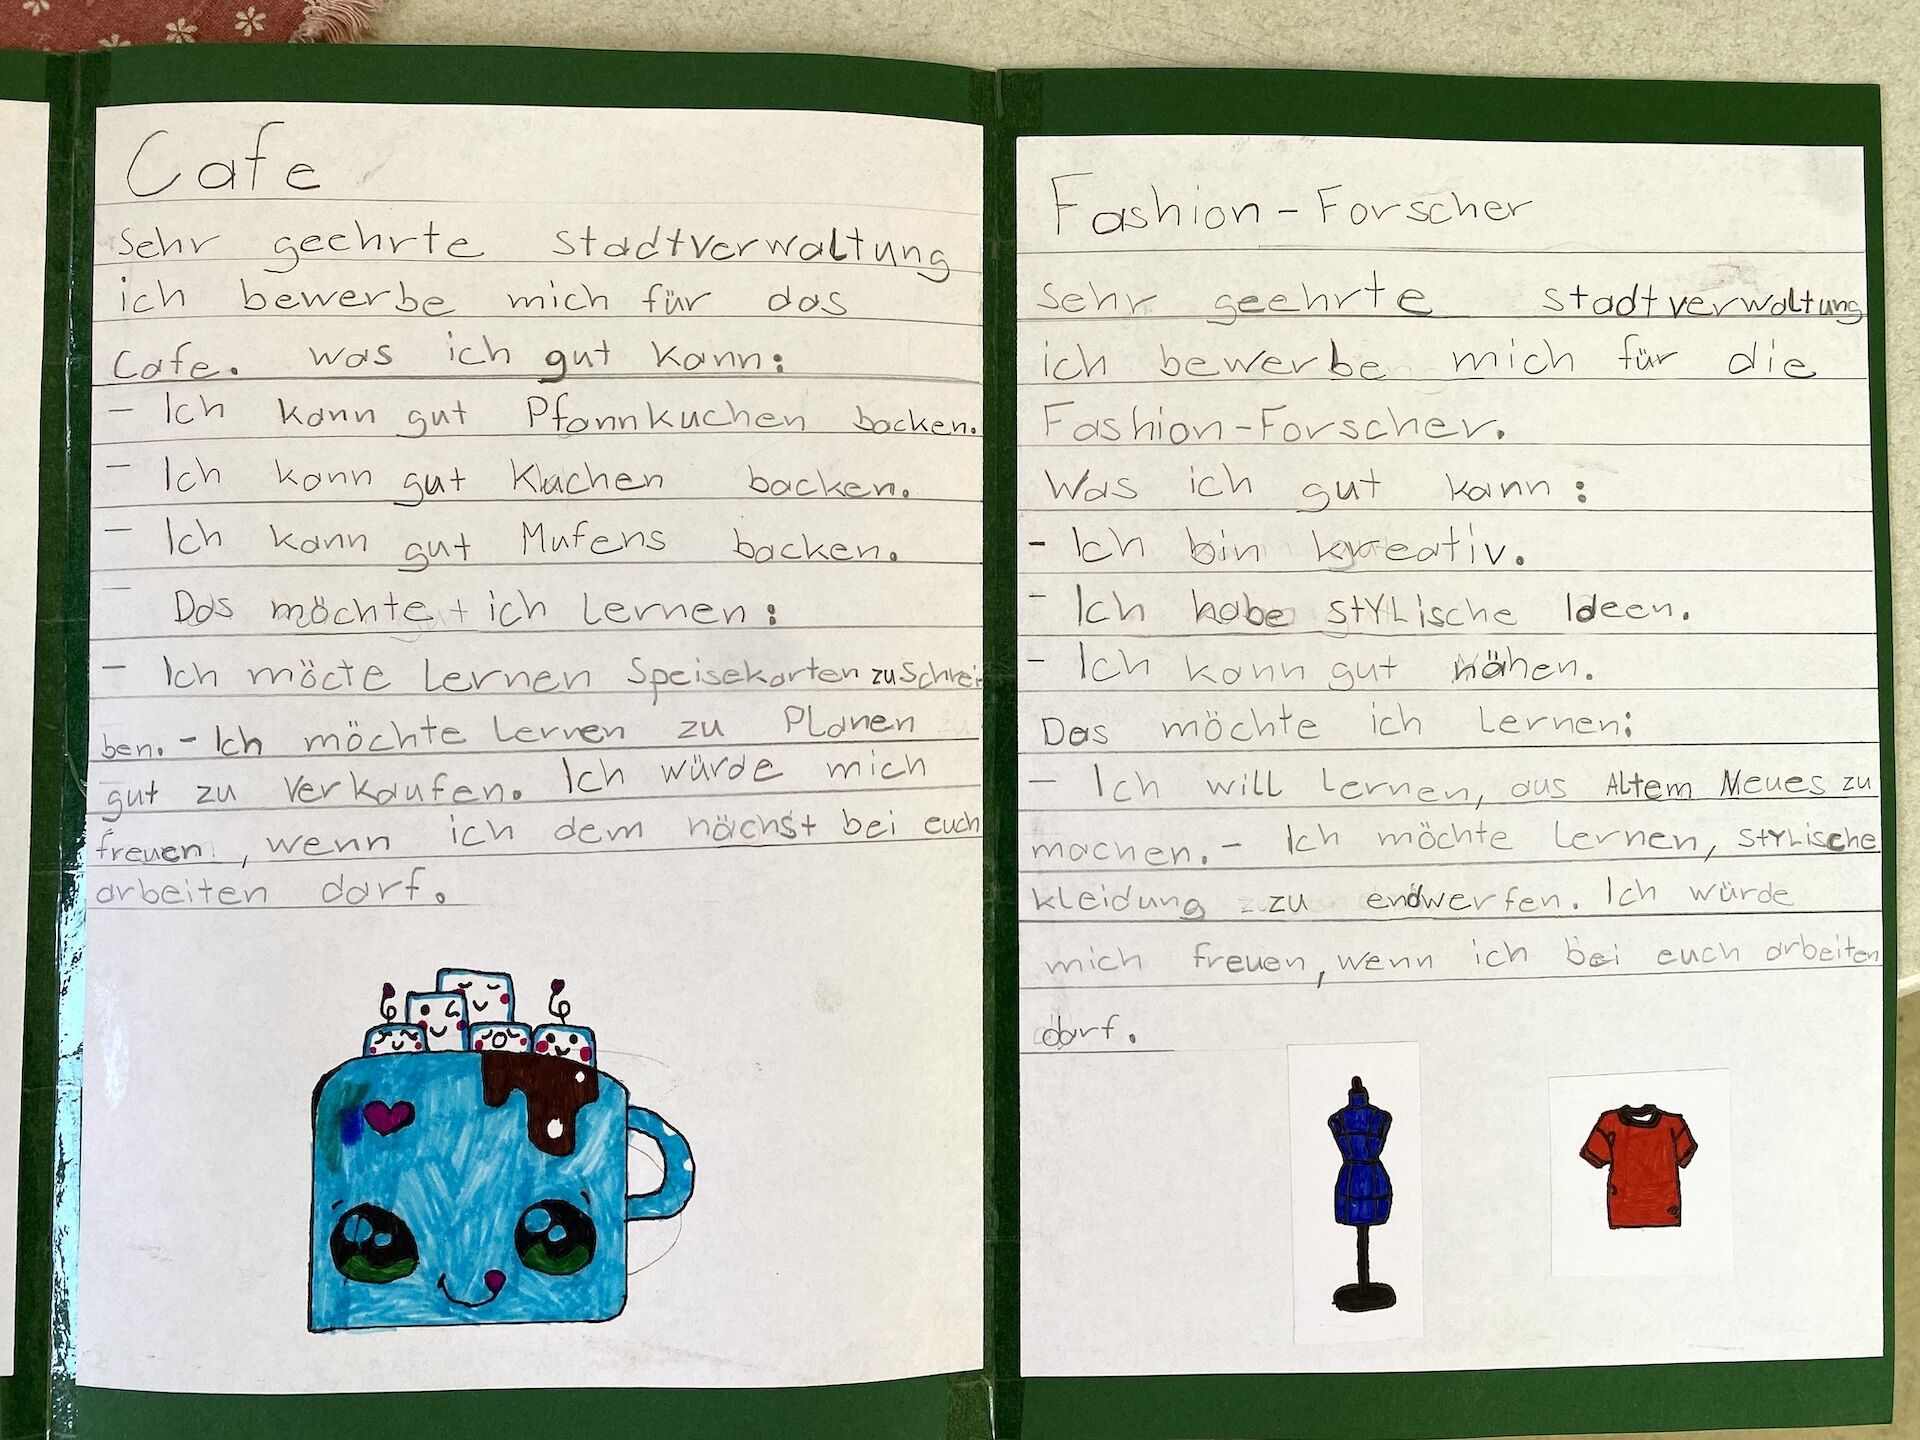 Cafe
Sehr geehrte Stadtverwaltung
ich bewerbe mich für das
Cafe. Was ich gut kann:
- Ich kann gut Pfannkuchen backen.
- Ich kann gut Kuchen backen.
- Ich kann gut Mufens backen.
- Das möchte ich Lernen:
- Ich möcte Lernen Speisekarten zu Schrei
ben. - Ich möchte Lernen zu Planen
gut zu Verkaufen. Ich würde mich
freuen, wenn ich dem nächst bei euch
arbeiten darf.
Fashion-Forscher
Sehr geehrte Stadtverwaltung
ich bewerbe mich für die
Fashion-Forscher.
Was ich gut kann:
- Ich bin kreativ.
- Ich habe STYLische Ideen.
- Ich kann gut nähen.
Das möchte ich Lernen:
- Ich will Lernen, aus Altem Neues zu
machen. - Ich möchte Lernen, STYLische
kleidung zu endwerfen. Ich würde
mich freuen, wenn ich bei euch arbeiten
darf.